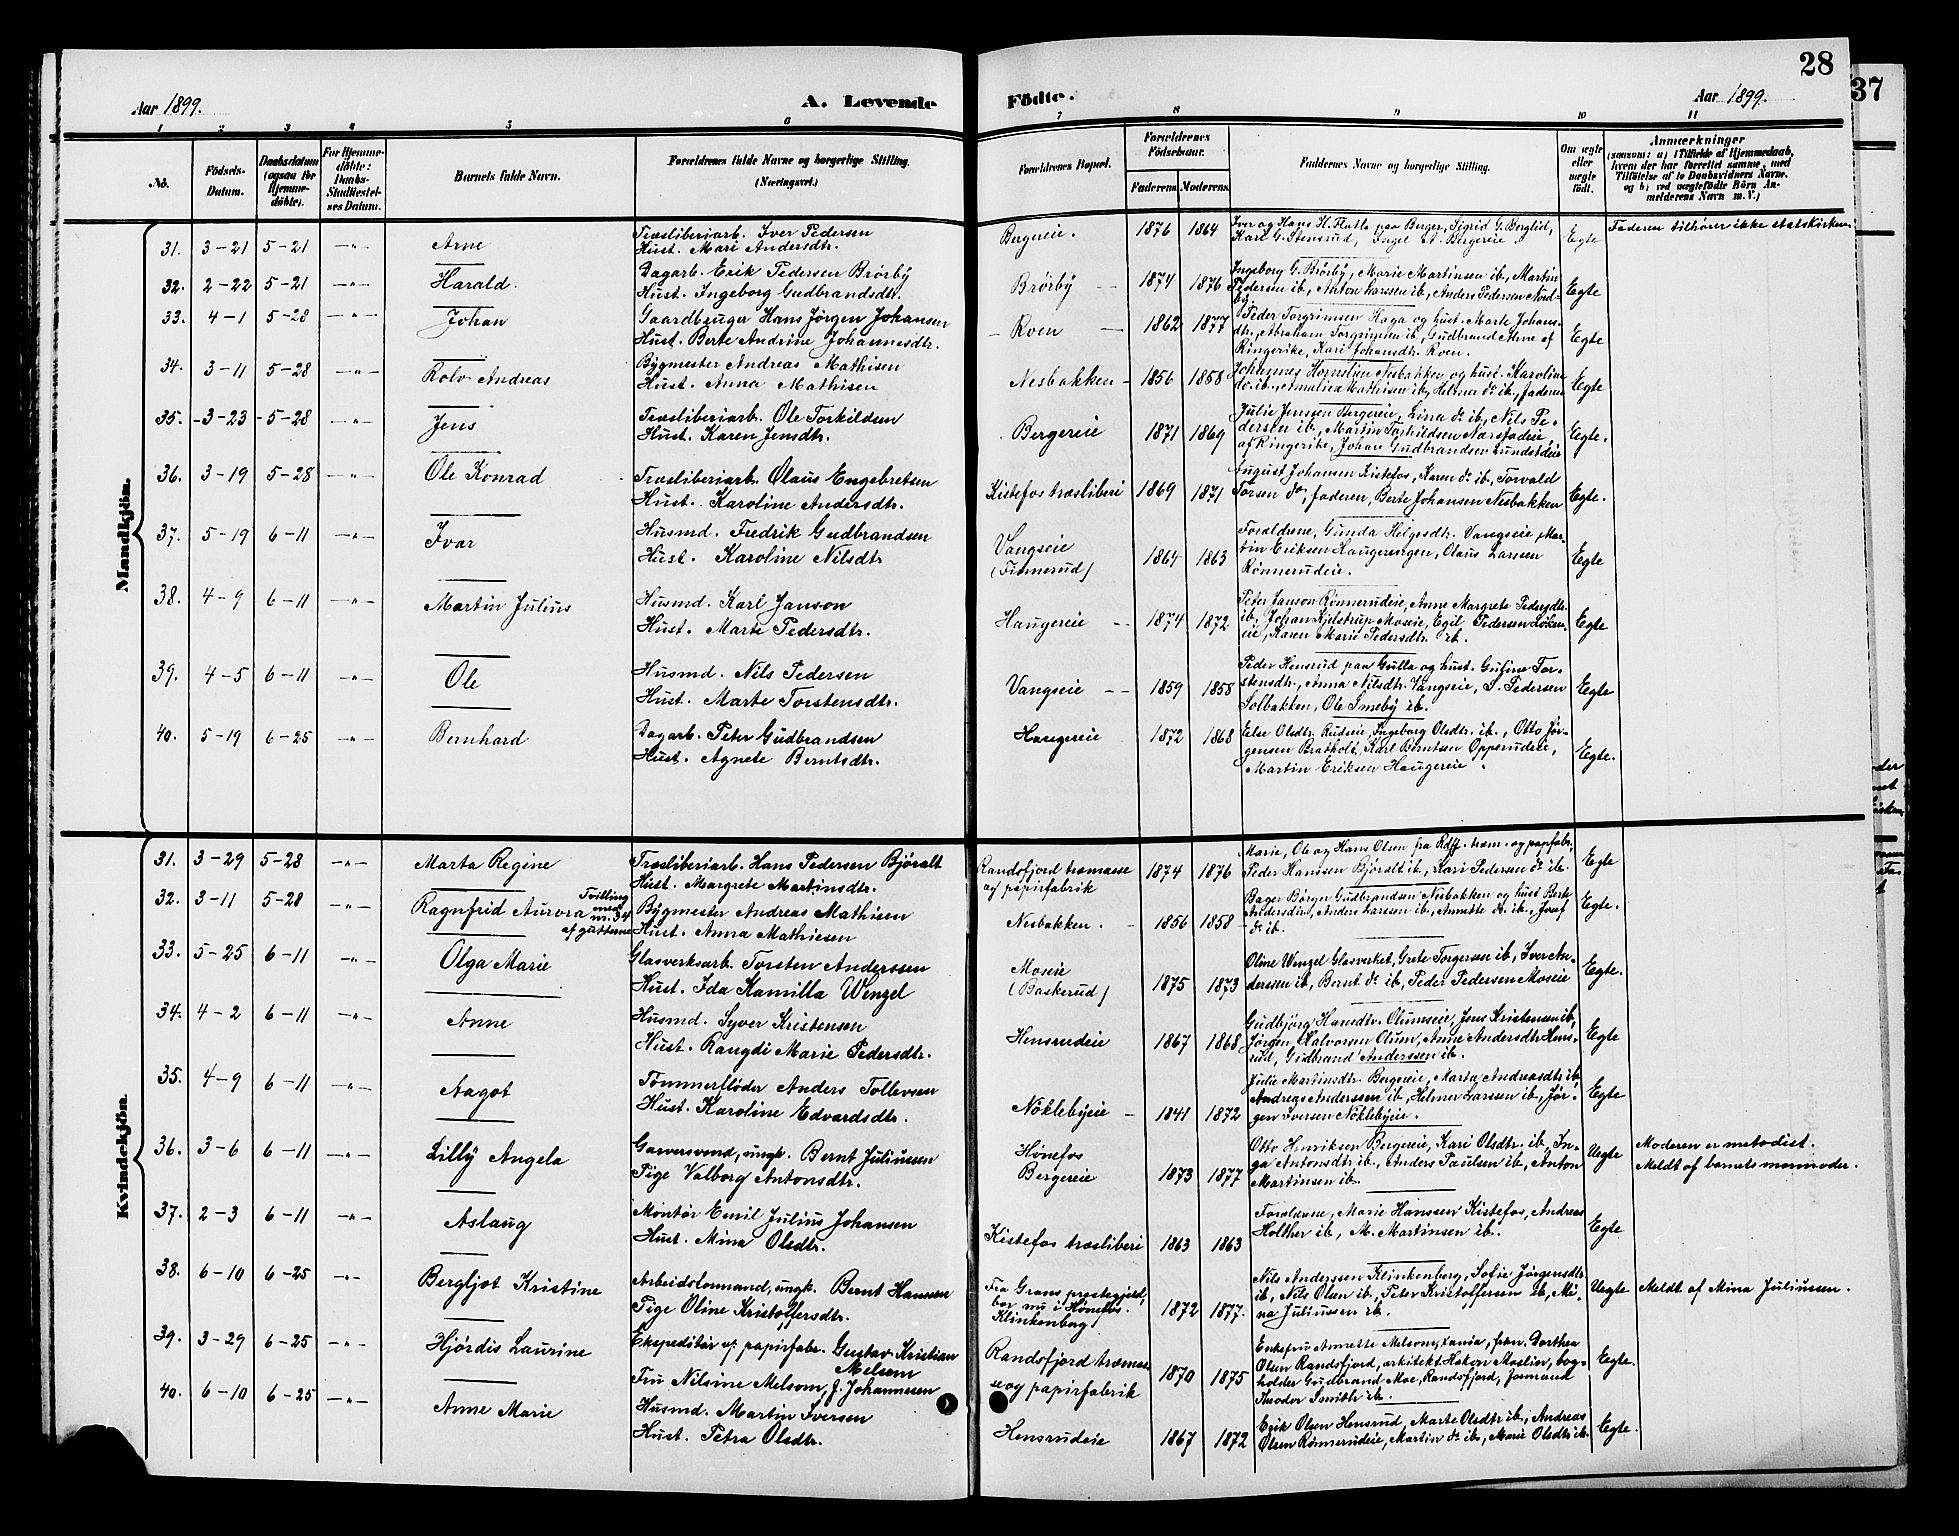 28
37
Aar 1899.
A. Levende
Födte.
Aar 1899.
1 2 3 4 5 6 7 8 9 10 11
No.
Födsels-
Datum.
Daabsdatum
(ogsaa for
Hjemme-
döbte).
For Hjemme-
döbte:
Daabs-
Stadfæstel-
ses Datum.
Barnets fulde Navn.
Forældrenes fulde Navne og borgerlige Stilling.
(Næringsvei.)
Forældrenes Bopæl.
Forældrenes
Födselsaar.
Faderens Moderens
Faddernes Navne og borgerlige Stilling.
Om ægte
eller
uægte
födt.
Anmærkninger
(saasom: a) i Tilfælde af Hjemmedaab,
hvem der har forrettet samme, med
Tilföielse af to Daabsvidners Navne,
og b) ved uægtefödte Börn An-
melderens Navn m. V.)
Mandkjön.
31. 3-21 5-21 —"— Arne
Træsliberiarb. Iver Pedersen
Hust. Mari Andersdtr.
Bergereie. 1876 1864
Iver og Hans H. Flatla paa Berger, Sigrid G. Berglid,
Karl G. Stensrud, Ingel Bergereie.
Egte
Faderen tilhører ikke statskirken
32. 2-22 5-21 —"— Harald.
Dagarb. Erik Pedersen Brörby
Hust. Ingeborg Gudbrandsdtr.
Brörby — 1874 1876
Ingeborg G. Brörby, Marie Martinsen ib., Martin
Pedersen ib., Anton Larssen ib., Anders Pedersen Nord-
by.
Egte
33. 4-1 5-28 —"— Johan
Gaardbruger Hans Jörgen Johansen
Hust. Berte Andrine Johannesdtr.
— Roen — 1862 1877
Peder Torgrimsen Haga og hust. Marte Johans-
dtr., Abraham Torgrimsen ib., Gudbrand Arne af
Ringerike, Kari Johansdtr. Roen.
Egte
34. 3-11 5-28 —"— Rolv Andreas
Bygmester Andreas Mathisen
Hust. Anna Mathisen
Nesbakken — 1856 1858
Johannes Kornelien Nesbakken og hust. Karoline
do ib., Amaliea Mathisen ib., Helmer do ib., Faderen
Egte
35. 3-23 5-28 —"— Jens
Træsliberiarb. Ole Torkildsen
Hust. Karen Jensdtr.
Bergereie 1871 1869
Julie Jensen Bergereie, Lina do ib., Nils Pe-
dersen ib., Martin Torkildsen Næsstadeie,
af Ringerike, Johan Gudbrandsen Lundstdeie
Egte.
36. 3-19 5-28 —"— Ole Konrad
Træsliberiarb. Olaus Engebretsen
Hust. Karoline Andersdtr.
Kistefos træsliberi 1869 1871
August Johansen Kistefos, Karen do ib., Torvald
Torsen do, faderen, Berte Johansen Nesbakken
Egte.
37. 5-19 6-11 —"— Ivar
Husmd. Fredrik Gudbrandsen
Hust. Karoline Nilsdtr
Vangseie
(Finnerud) 1864 1863
Forældrene, Gunda Helgesdtr. Vangseie, Mar-
tin Eriksen Haugerengen, Olaus Larssen
Rönnerudeie.
Egte
38. 4-9 6-11 —"— Martin Julius
Husmd. Karl Janson
Hust. Marte Pedersdtr.
Haugereie — 1874 1872
Peter Janson Rönnerudeie, Anne Margrete Pedersdtr.
ib., Johan Kjelstrup Moseie, Egil Pedersen Löken-
eie, Karen Marie Pedersdtr. ib.
Egte
39. 4-5 6-11 —"— Ole
Husmd. Nils Pedersen
Hust. Marte Torstensdtr.
Vangseie — 1859 1858
Peder Hensrud paa Gulla og hust. Gufine Tor-
stensdtr., Anna Nilsdtr. Vangseie, S. Pedersen
Solbakken, Ole Smeby ib.
Egte
40. 5-19 6-25 —"— Bernhard
Dagarb. Peter Gudbrandsen
Hust. Agnete Berntsdtr.
Haugereie 1872 1868
Else Olsdtr. Rudeie, Ingeborg Olsdtr. ib., Otto Jör-
gensen Bratholt, Karl Berntsen Opperudeie,
Martin Eriksen Haugereie.
Egte.
Kvindekjön.
31. 3-29 5-28 —"— Marta Regine
Træsliberiarb. Hans Pedersen Björalt
Hust. Margrete Martinsdtr.
Randsfjord træmasse
og papirfabrik 1874 1876
Marie, Ole og Hans Olsen fra Rdfj. træm. og papfabr.,
Peder Hanssen Björalt ib., Kari Pedersen do ib.
Egte
32. 3-11 5-28 —"— Ragnfrid Aurora
Tvilling
med
nr. 34
af guttene
Bygmester Andreas Mathisen
Hust. Anna Mathiesen
Nesbakken. 1856 1858
Bager Börger Gudbrandsen Nesbakken og hust Berte
Andersdtr., Anders Larssen ib., Annette do ib., Josef
do ib.
Egte.
33. 5-25 6-11 —"— Olga Marie
Glasverksarb. Torsten Anderssen
Hust. Ida Kamilla Wenzel
Moseie
(Baskerud) 1875 1873
Oline Wenzel Glasverket, Grete Torgersen ib., Iver An-
derssen ib., Bernt do ib., Peder Pedersen Moseie
Egte.
34. 4-2 6-11 —"— Anne
Husmd. Syver Kristensen
Hust. Rangdi Marie Pedersdtr.
Hensrudeie 1867 1868
Gudbjörg Hansdtr. Olumseie, Jens Kristensen ib.,
Jörgen Halvorsen Olum, Anne Andersdtr Hens-
rud, Gudbrand Anderssen ib.
Egte
35. 4-9 6-11 —"— Aagot
Tömmerflöder Anders Tollevsen
Hust. Karoline Edvardsdtr.
Nöklebyeie — 1841 1872
Julie Martinsdtr. Bergereie, Marta Andreasdtr ib.,
Andreas Anderssen ib., Helmer Larssen ib., Jör-
gen Iversen Nöklebyeie.
Egte
36. 3-6 6-11 —"— Lilly Angela
Garversvend, ungk. Bernt Juliussen
Pige Valborg Antonsdtr.
Hønefos
Bergereie 1873 1877
Otto Henriksen Bergereie, Kari Olsdtr. ib., In-
ga Antonsdtr. ib., Anders Paulsen ib., Anton
Martinsen ib.
Uegte
Moderen er metodist.
Meldt af barnets mormoder.
37. 2-3 6-11 —"— Aslaug
Montör Emil Julius Johansen
Hust. Mina Olsdtr.
Kistefos træsliberi 1863 1863
Forældrene, Marie Hanssen Kistefos, Andreas
Holther ib., M. Martinsen ib.
Egte
38. 6-10 6-25 —"— Bergljot Kristine
Arbeidsformand, ungk. Bernt Hansen
Pige Oline Kristoffersdtr.
Fra Grans prestegjeld,
bor nu i Hønefos.
Klinkenberg 1872 1877.
Nils Anderssen Klinkenberg, Sofie Jørgensdtr
ib., Nils Olsen ib., Peter Kristoffersen ib., Mi-
na Juliussen ib.
Uegte
Meldt af Mina Juliussen.
39. 3-29 6-25 —"— Hjördis Laurine
Ekspeditör v. papirfabr. Gustav Kristian
Melsom
Fru Nilsine Melsom, f. Johannesen
Randsfjord træmas-
se og papirfabrik 1870 1875
Enkefru Annette Melsom, Xania, frkn. Dorthea
Olsen Randsfjord, arkitekt Hakon Mosling, bog-
holder Gudbrand Moe, Randsfjord, formand
Theodor Smith ib.
Egte.
40. 6-10 6-25 —"— Anne Marie
Husmd. Martin Iversen
Hust. Petra Olsdtr.
Hensrudeie 1867 1872
Erik Olsen Hensrud, Marte Olsdtr ib., Andreas
Olsen Rönnerudeie, Martin do ib., Marie Olsdtr ib.
Egte.